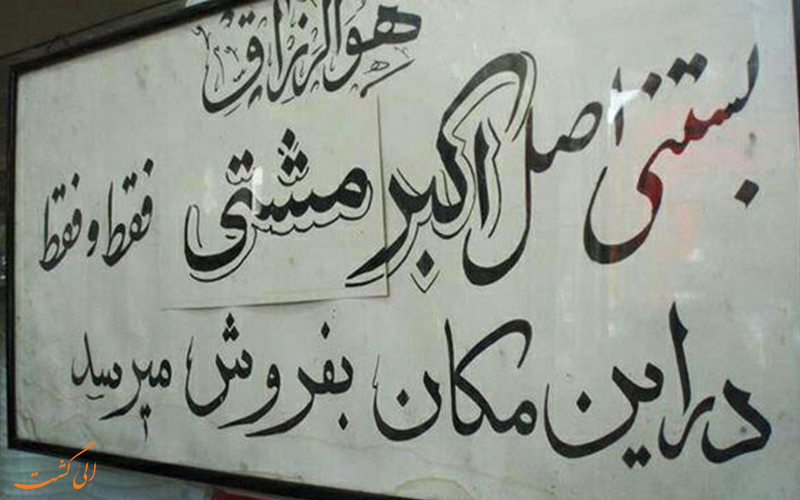 هوالرزاق
بستنی اصل اکبر مشتی فقط و فقط
در این مکان بفروش میرسد
الی گشت